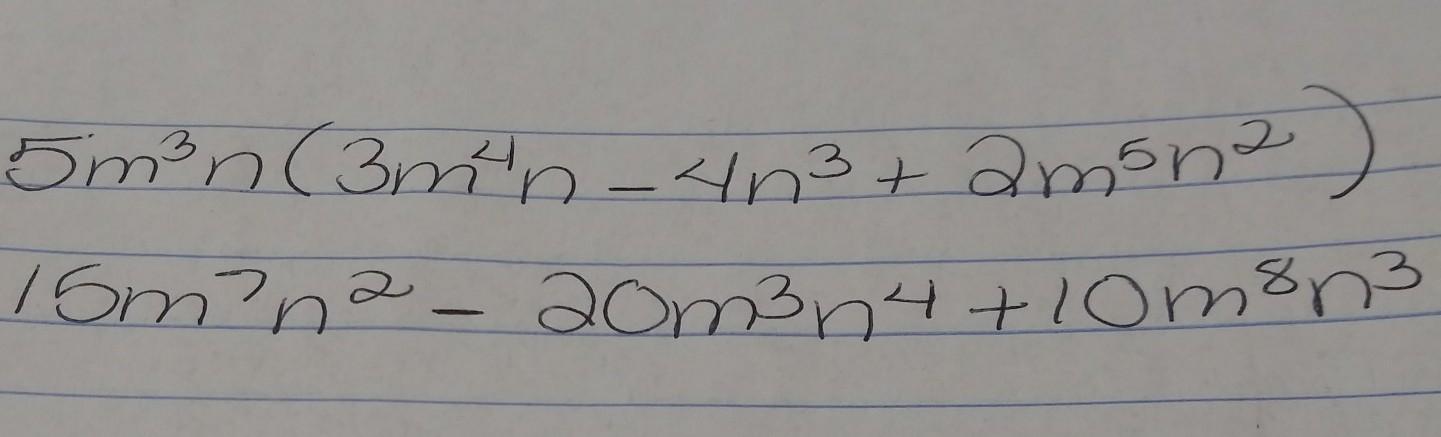 5m³n(3m⁴n - 4n³ + 2m⁵n²)
15m⁷n² - 20m³n⁴ + 10m⁸n³